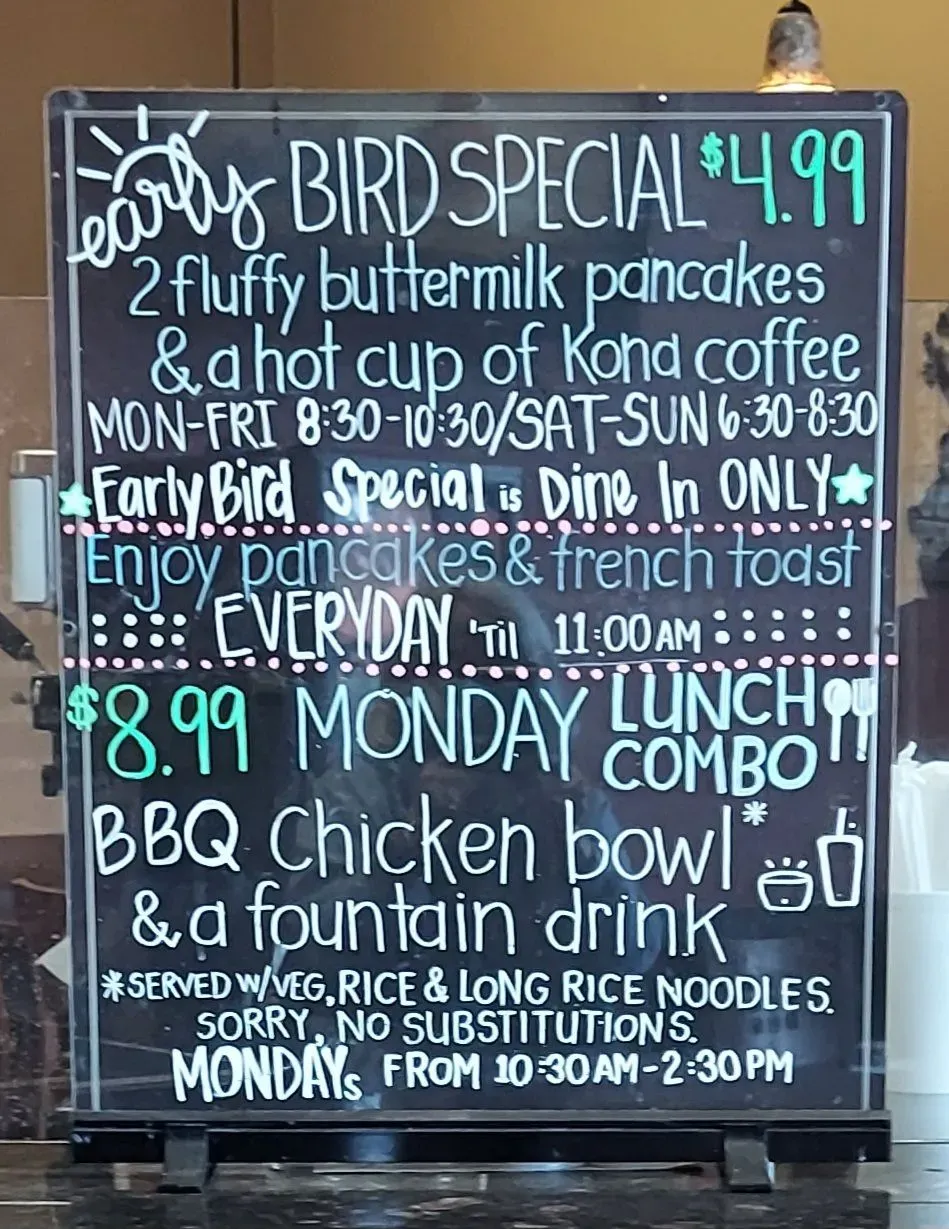 early BIRD SPECIAL $4.99
2 fluffy buttermilk pancakes
& a hot cup of Kona coffee
MON-FRI 8:30-10:30/SAT-SUN 6:30-8:30
Early Bird Special is Dine In ONLY
Enjoy pancakes & french toast
EVERYDAY 'Til 11:00 AM
$8.99 MONDAY LUNCH COMBO
BBQ Chicken bowl*
& a fountain drink
*SERVED W/VEG, RICE & LONG RICE NOODLES.
SORRY, NO SUBSTITUTIONS.
MONDAYs FROM 10:30 AM-2:30 PM